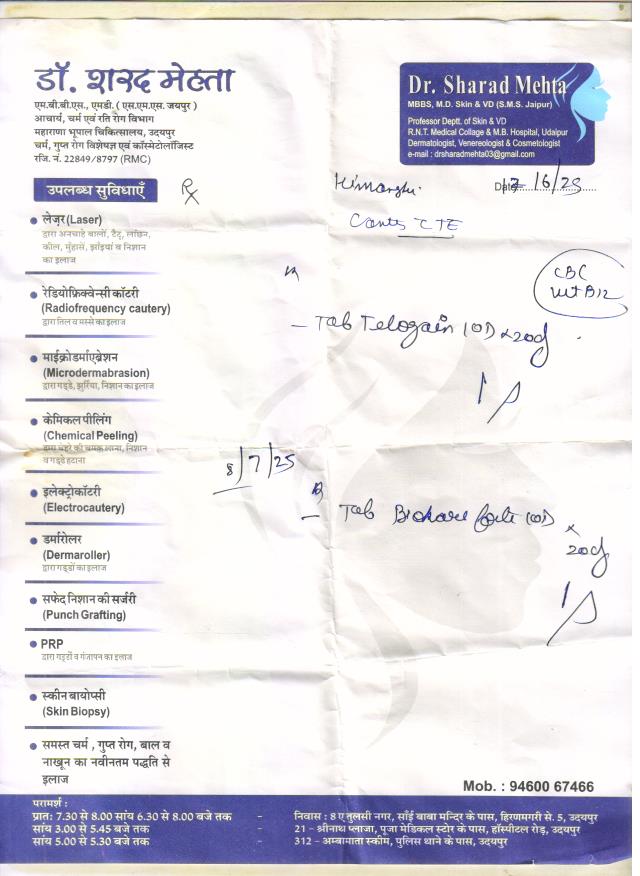 डॉ. शरद मेहता
एम.बी.बी.एस., एमडी. ( एस.एम.एस. जयपुर )
आचार्य, चर्म एवं रति रोग विभाग
महाराणा भूपाल चिकित्सालय, उदयपुर
चर्म, गुप्त रोग विशेषज्ञ एवं कॉस्मेटोलॉजिस्ट
रजि. नं. 22849/8797 (RMC)
Dr. Sharad Mehta
MBBS, M.D. Skin & VD (S.M.S. Jaipur)
Professor Deptt. of Skin & VD
R.N.T. Medical Collage & M.B. Hospital, Udaipur
Dermatologist, Venereologist & Cosmetologist
e-mail : drsharadmehta03@gmail.com
उपलब्ध सुविधाएँ
Rx
/6/25
CTE
CBC
Vit B12
- Tab Telogain (OD) x 20d
8/7/25
- Tab forte (OD) x
20d
लेज़र (Laser)
द्वारा अनचाहे बालों, टैटू, लांछन,
कील, मुंहासे, झांइयां व निशान
का इलाज
रेडियोफ्रिक्वेन्सी कॉटरी
(Radiofrequency cautery)
द्वारा तिल व मस्से का इलाज
माईक्रोडर्माएब्रेशन
(Microdermabrasion)
द्वारा गड्डे, झुर्रियां, निशान का इलाज
केमिकल पीलिंग
(Chemical Peeling)
द्वारा चेहरे की चमक लाना, निशान
व गड्डे हटाना
इलेक्ट्रोकॉटरी
(Electrocautery)
डर्मारोलर
(Dermaroller)
द्वारा गड्डों का इलाज
सफेद निशान की सर्जरी
(Punch Grafting)
PRP
द्वारा गड्डों व गंजापन का इलाज
स्कीन बायोप्सी
(Skin Biopsy)
समस्त चर्म , गुप्त रोग, बाल व
नाखून का नवीनतम पद्धति से
इलाज
Mob. : 94600 67466
परामर्श :
प्रातः 7.30 से 8.00 सांय 6.30 से 8.00 बजे तक - निवास : 8 ए तुलसी नगर, साँई बाबा मन्दिर के पास, हिरणमगरी से. 5, उदयपुर
सांय 3.00 से 5.45 बजे तक - 21 – श्रीनाथ प्लाजा, पूजा मेडिकल स्टोर के पास, हॉस्पीटल रोड़, उदयपुर
सांय 5.00 से 5.30 बजे तक - 312 – अम्बामाता स्कीम, पुलिस थाने के पास, उदयपुर